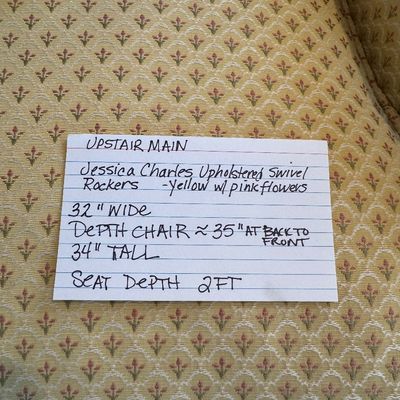 UPSTAIR MAIN
Jessica Charles Upholstered Swivel
Rockers - yellow w/ pink flowers
32" WIDE
DEPTH CHAIR ≈ 35" AT BACK TO FRONT
34" TALL
SEAT DEPTH 2FT